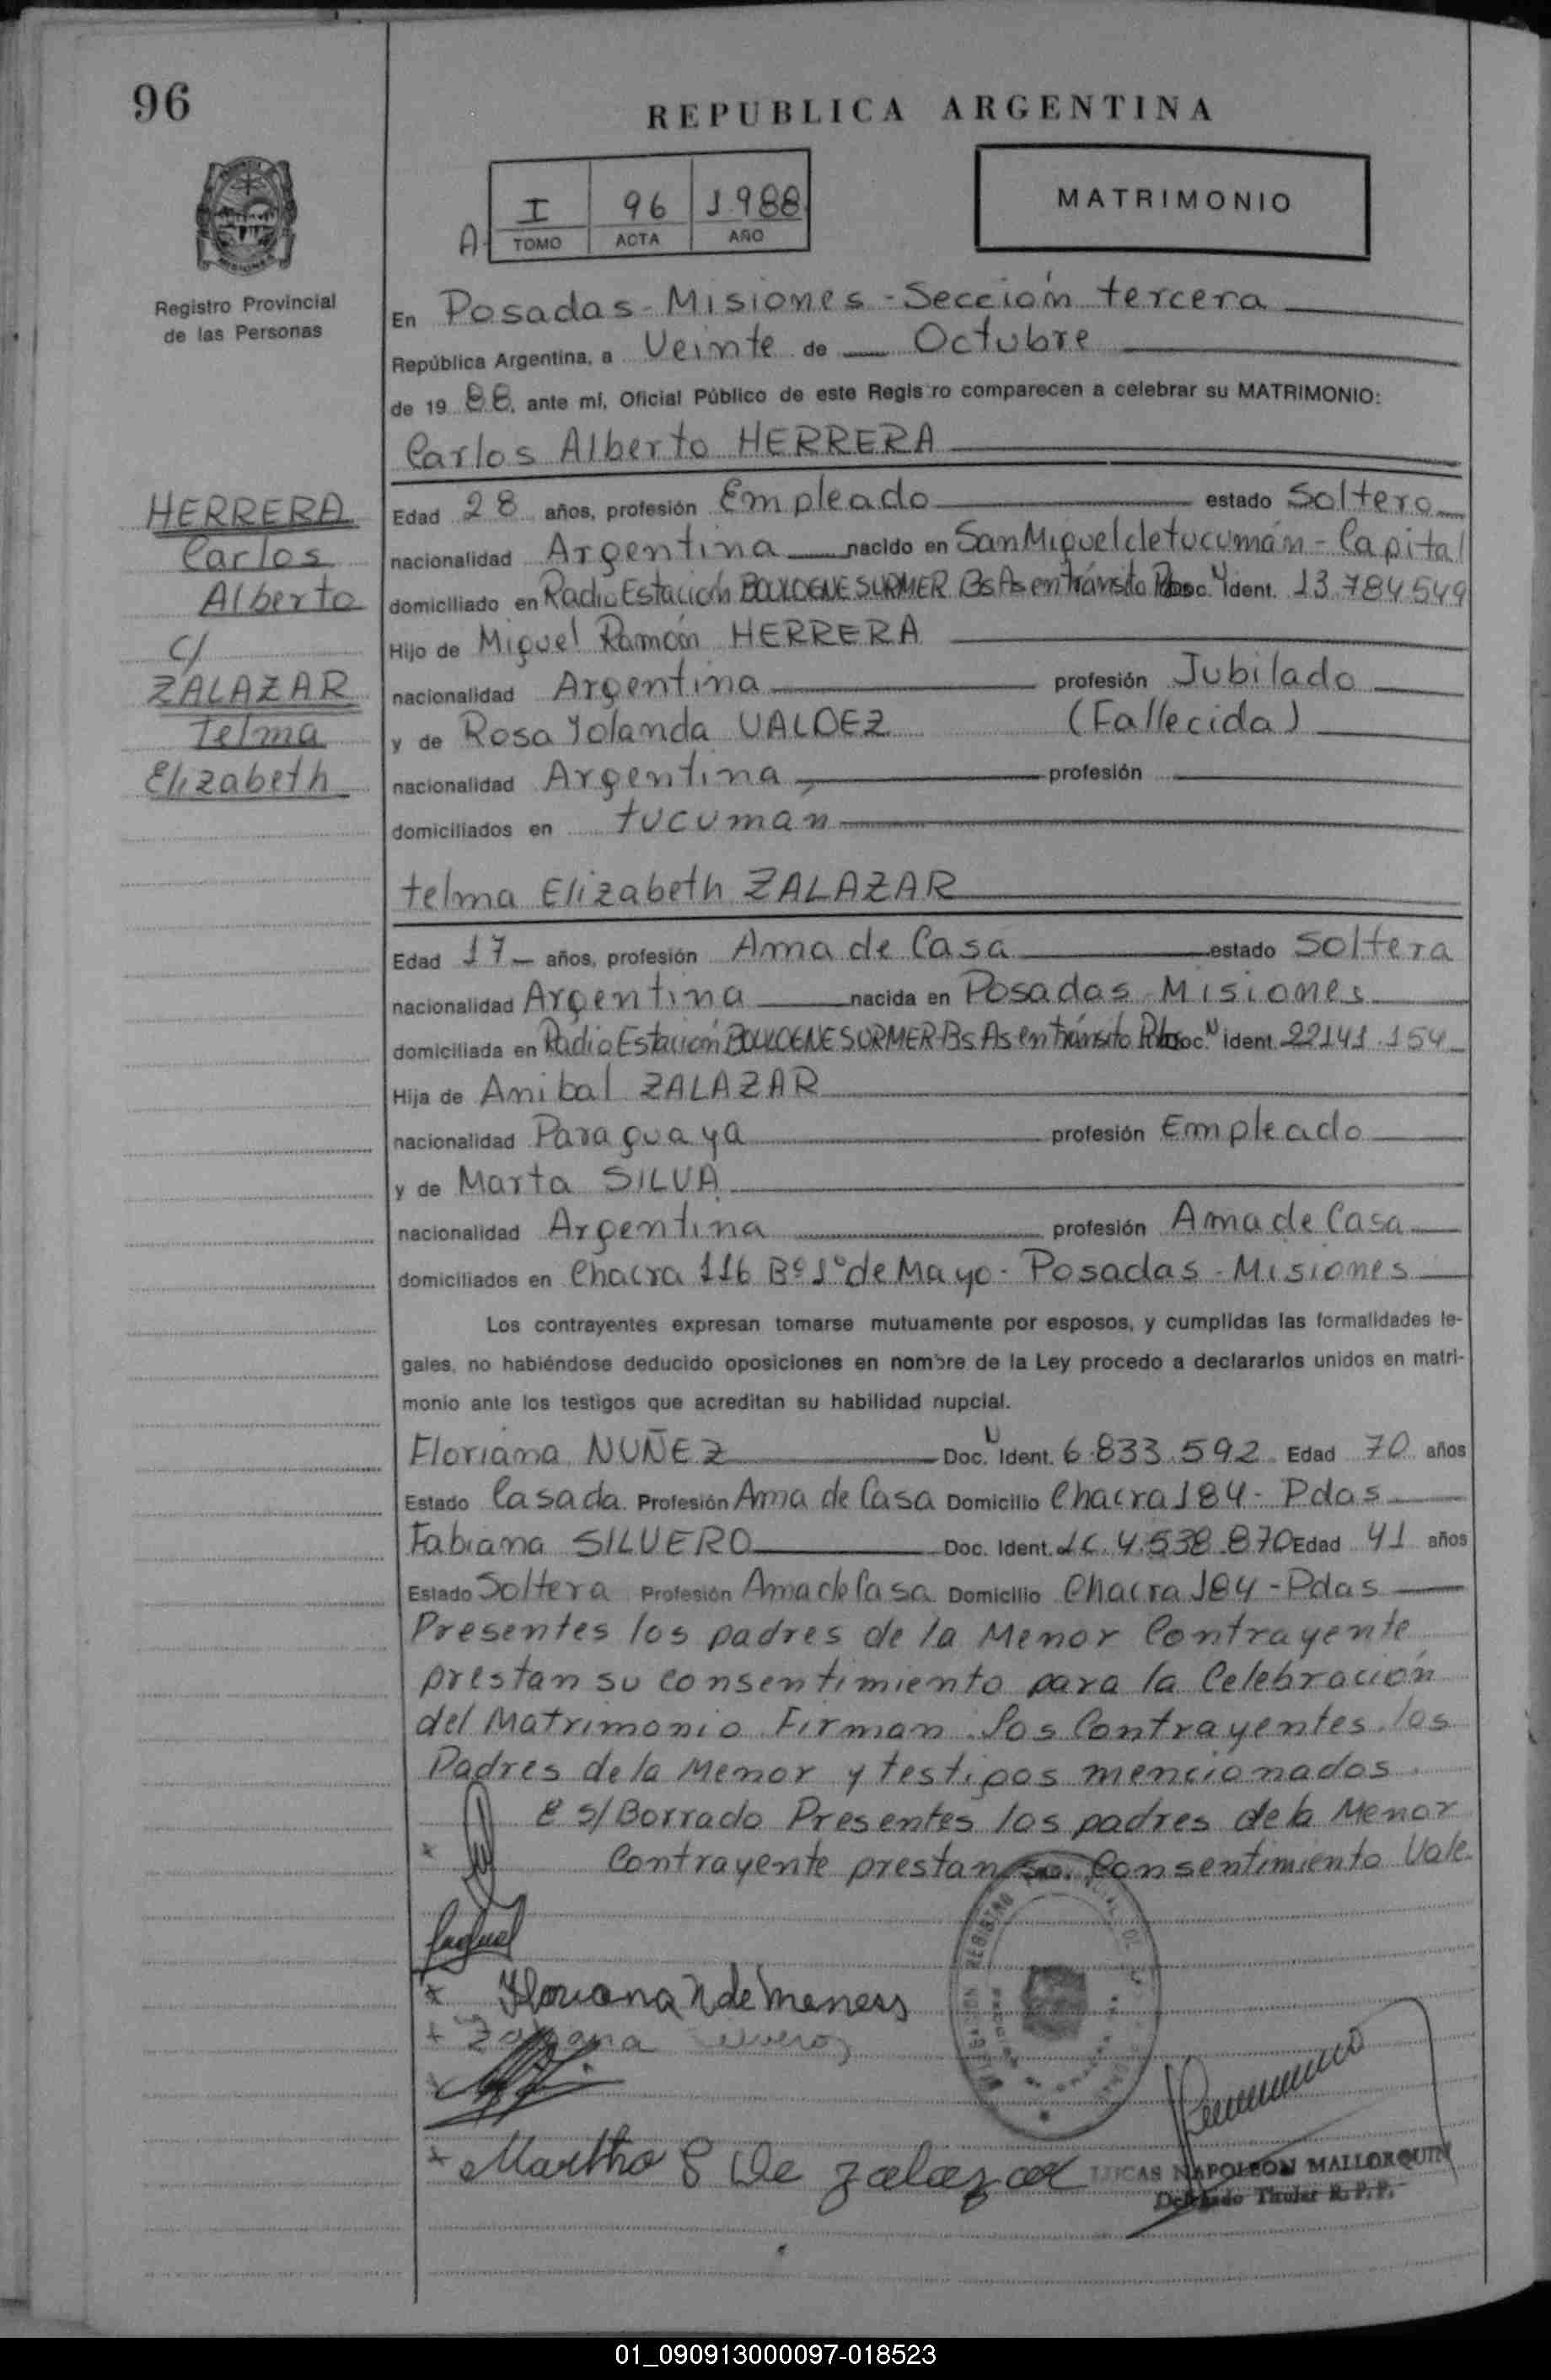 96
REPUBLICA ARGENTINA
I 96 1988
A TOMO ACTA AÑO
MATRIMONIO
Registro Provincial
de las Personas
En Posadas - Misiones - Sección tercera
República Argentina, a Veinte de Octubre
de 19 88, ante mí, Oficial Público de este Registro comparecen a celebrar su MATRIMONIO:
Carlos Alberto HERRERA
HERRERA
Carlos
Alberto
c/
ZALAZAR
Telma
Elizabeth
Edad 28 años, profesión Empleado estado Soltero
nacionalidad Argentina nacido en San Miguel de tucumán - Capital
domiciliado en Radio Estación BOULOGNE SURMER Bs As en tránsito Doc. ident. 13.784.549
Hijo de Miguel Ramón HERRERA
nacionalidad Argentina profesión Jubilado
y de Rosa Yolanda VALDEZ (Fallecida)
nacionalidad Argentina profesión
domiciliados en tucumán
telma Elizabeth ZALAZAR
Edad 17 años, profesión Ama de Casa estado Soltera
nacionalidad Argentina nacida en Posadas Misiones
domiciliada en Radio Estación BOULOGNE SURMER - Bs As en tránsito Doc. ident. 22141.154
Hija de Anibal ZALAZAR
nacionalidad Paraguaya profesión Empleado
y de Marta SILVA
nacionalidad Argentina profesión Ama de Casa
domiciliados en Chacra 116 Bº 1º de Mayo - Posadas - Misiones
Los contrayentes expresan tomarse mutuamente por esposos, y cumplidas las formalidades le-
gales, no habiéndose deducido oposiciones en nombre de la Ley procedo a declararlos unidos en matri-
monio ante los testigos que acreditan su habilidad nupcial.
Floriana NUÑEZ Doc. Ident. 6.833.592 Edad 70 años
Estado Casada Profesión Ama de Casa Domicilio Chacra 184 - Pdas
Fabiana SILVERO Doc. Ident. LC. 4.538.870 Edad 41 años
Estado Soltera Profesión Ama de Casa Domicilio Chacra 184 - Pdas
Presentes los padres de la Menor Contrayente
prestan su consentimiento para la Celebración
del Matrimonio Firman los Contrayentes los
Padres de la Menor y testigos mencionados.
E s/Borrado Presentes los padres de la Menor
Contrayente prestan su Consentimiento Vale.
Floriana N de meness
Martha S de zalazar
LUCAS NAPOLEON MALLORQUIN
Delegado Titular R.P.P.
01_090913000097-018523